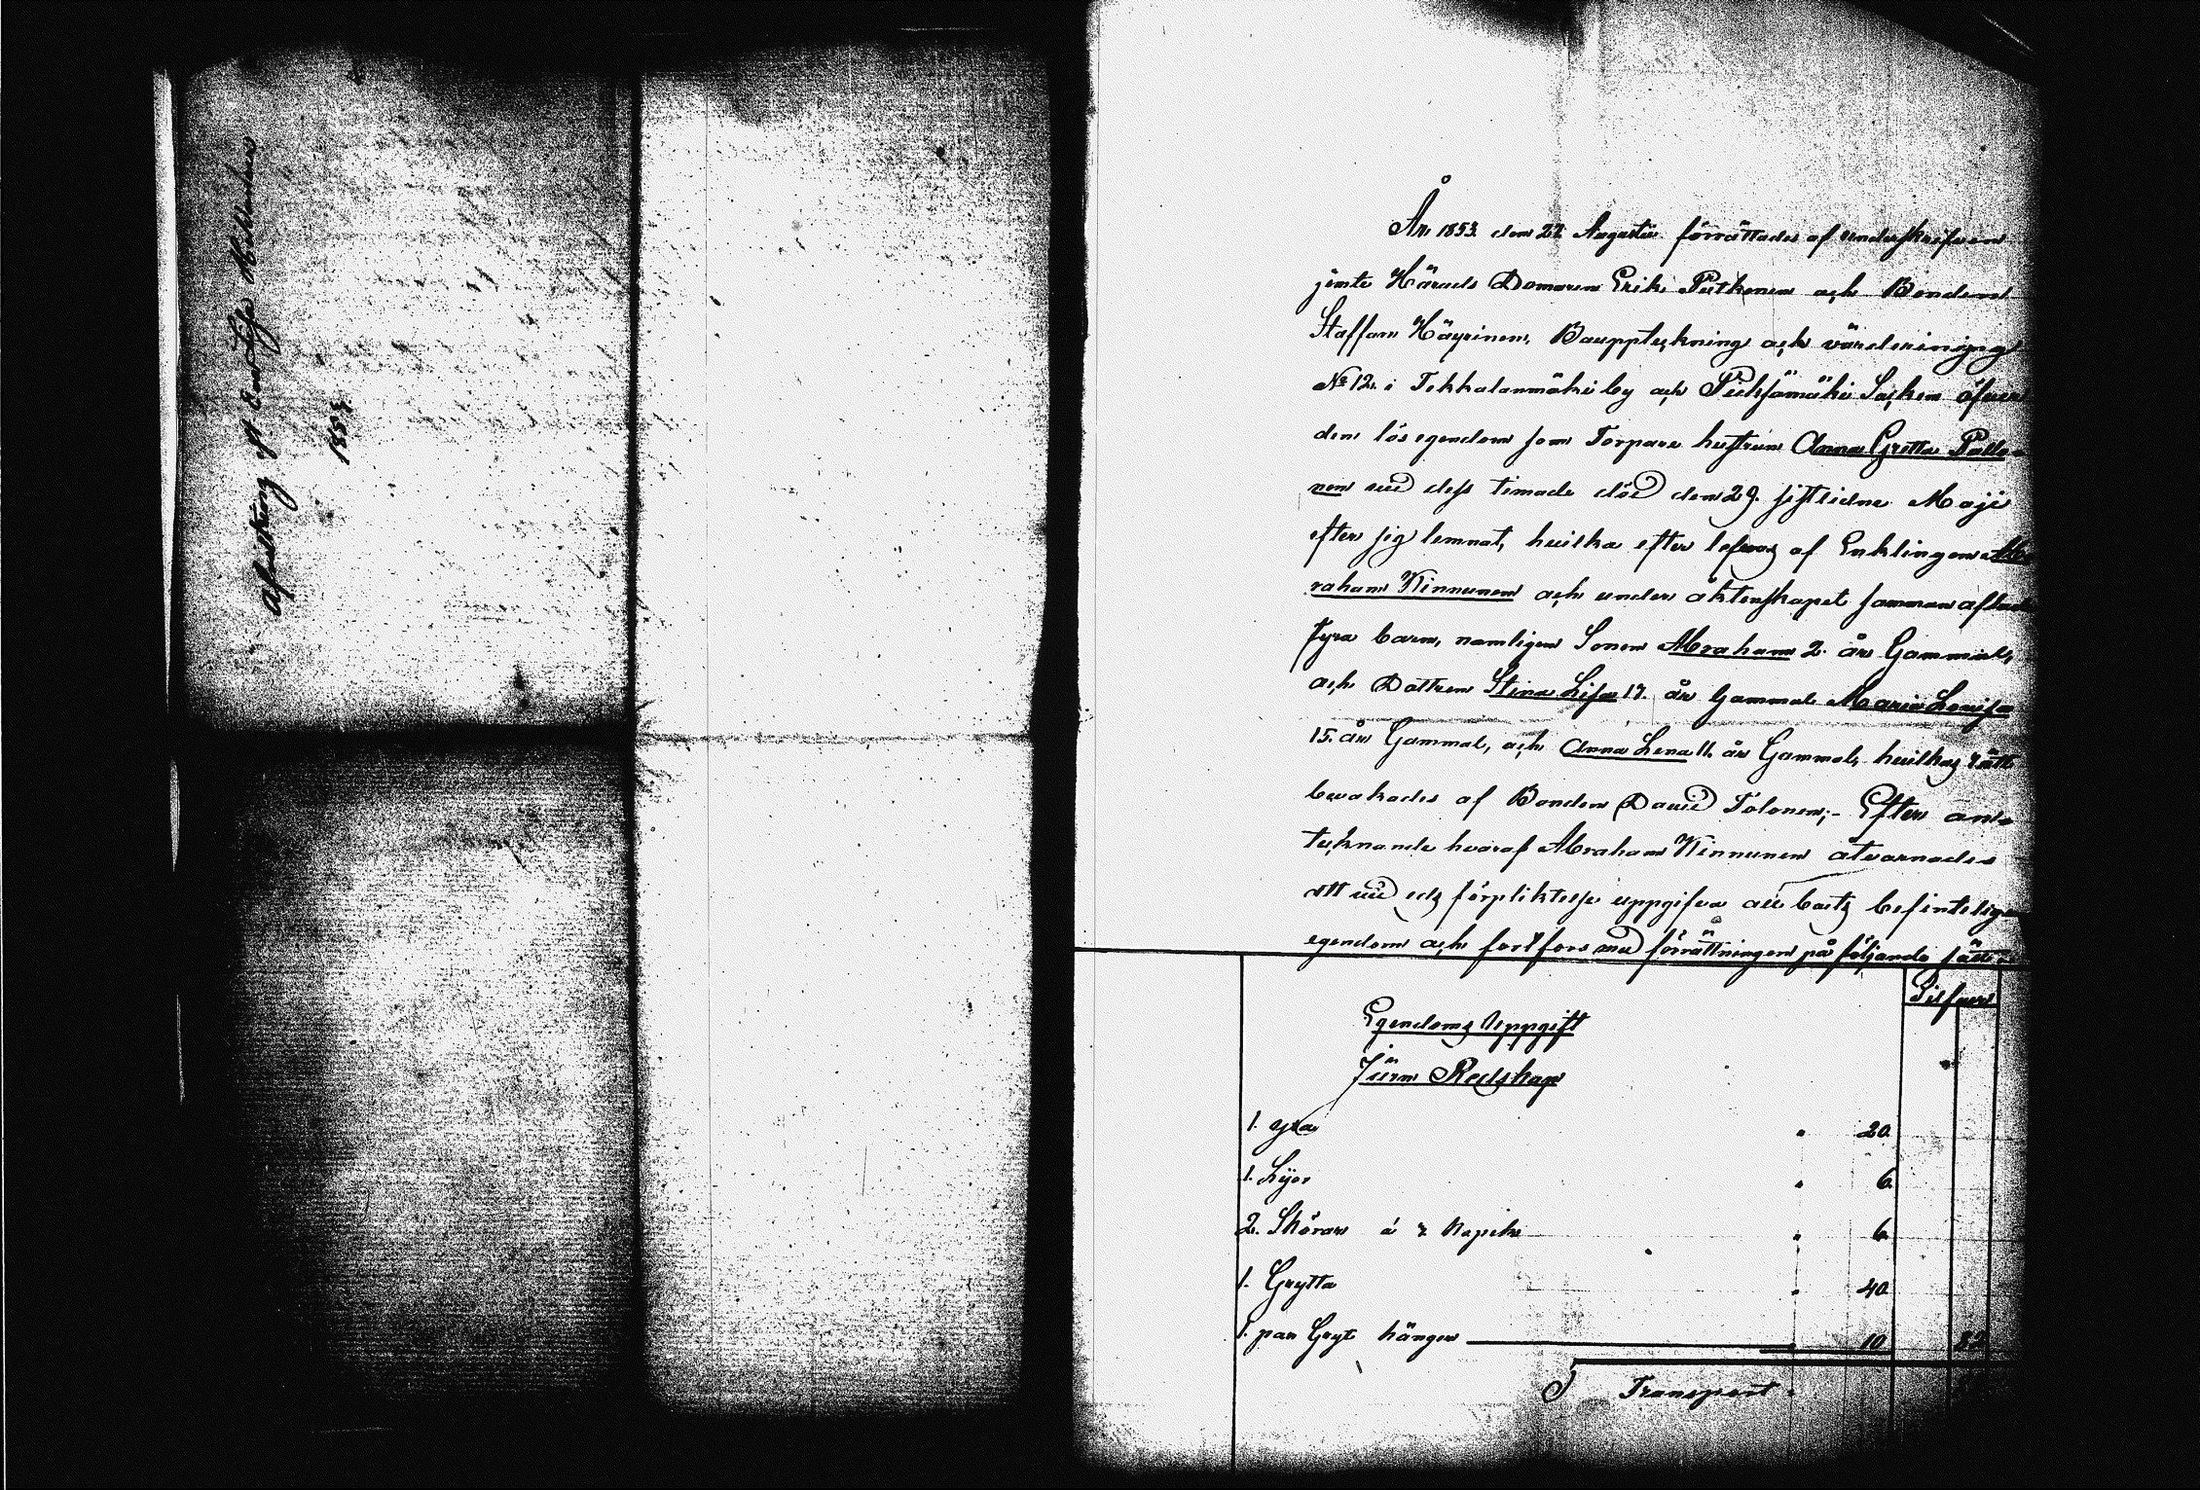 1853
År 1853 den 22 Augusti förrättades af underskrifven
jemte Härads Domaren Erik Putkonen och Bonden
Staffan Häyrinen, Bouppteckning och värdering
No 12. i Tekkalanmäki by och Pieksämäki Socken öfver
den lösegendom som Torpare hustrun Anna Gretta Pullo-
nen vid dess timade död den 29. sistlidne Maji
efter sig lemnat, hvilka efter lefvas af Enklingen Ab-
raham Kinnunen och under äktenskapet samman aflade
fyra barn, namligen Sonen Abraham 2. år Gammal,
och Dottren Stina Lisa 17. år Gammal Maria Lovisa
15. år Gammal, och Anna Lena 11. år Gammal, hvilkas rätt
bevakades af Bonden David Tolonen;- Efter
tecknande hvaraf Abraham Kinnunen åtvarnades
att vid eds förpliktelse uppgifva all boets befinteliga
egendom och fortfors med förrättningen på följande sätt:
Silfver
Egendoms Uppgift
Järn Redskap
1. yxa " 20
1. Lijor " 6
2. Skäror á 3 Kopek " 6
1. Grytta " 40
1. par Gryt hänger " 10 82
Transport